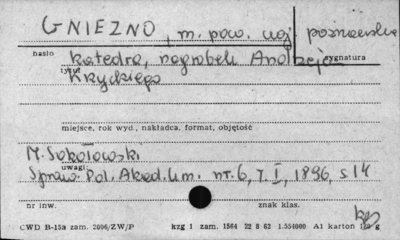 GNIEZNO, m. pow. woj. poznańskie
hasło
katedra, nagrobek Andrzeja
tytuł
sygnatura
Krzyckiego
miejsce, rok wyd., nakładca, format, objętość
M. Sokołowski
uwagi
Spraw. Pol. Akad. Um. nr. 6, T. I, 1896, s 14
nr inw.
znak klas.
CWD B-15a zam. 2006/ZW/P
kzg 1 zam. 1564 22 8 62 1.554000 A1 karton